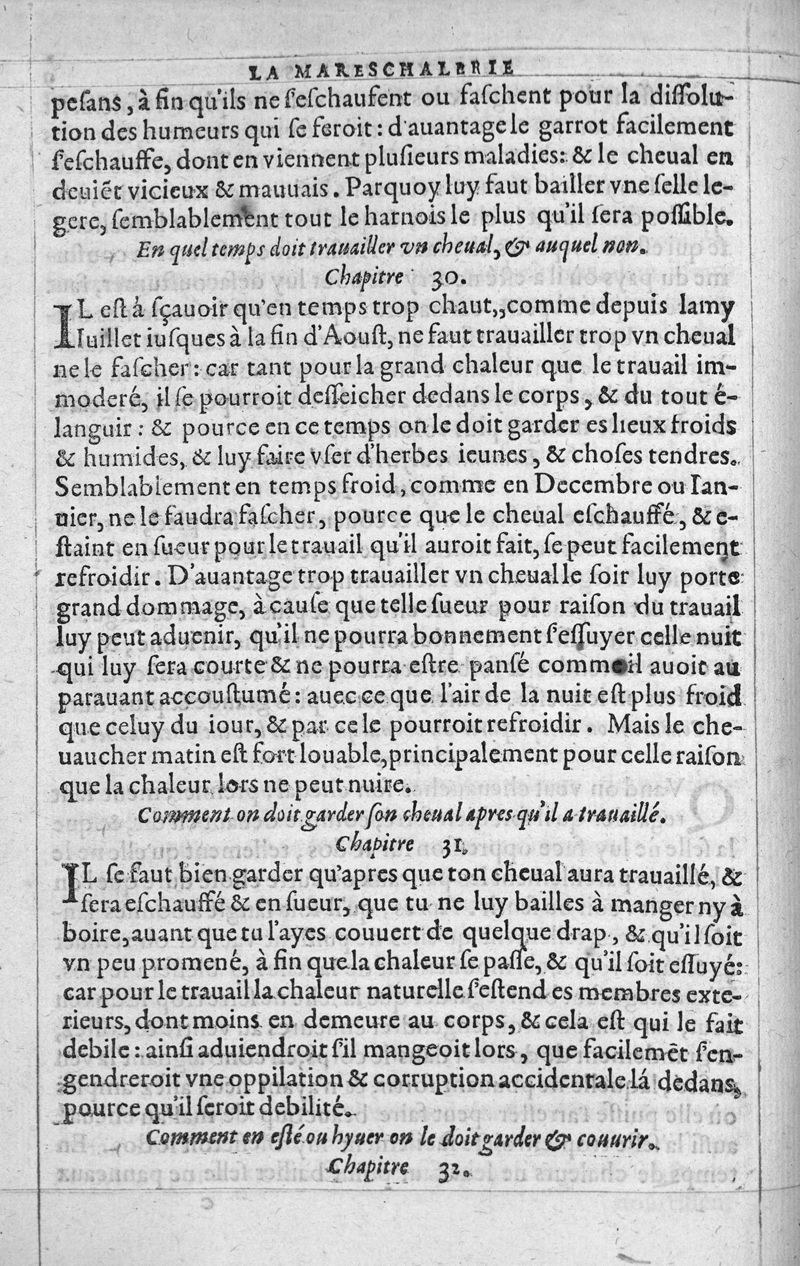 LA MARESCHALERIE
pesans, à fin qu'ils ne s'eſchaufent ou faſchent pour la diſſolu-
tion des humeurs qui ſe feroit : d'auantage le garrot facilement
ſ'eſchauffe, dont en viennent pluſieurs maladies: & le cheual en
deuiẽt vicieux & mauuais. Parquoy luy faut bailler vne ſelle le-
gere, ſemblablement tout le harnois le plus qu'il ſera poſſible.
En quel temps doit trauailler vn cheual, & auquel non.
Chapitre 30.
IL eſt à ſçauoir qu'en temps trop chaut,,comme depuis lamy
Iuillet iuſques à la fin d'Aouſt, ne faut trauailler trop vn cheual
ne le faſcher: car tant pour la grand chaleur que le trauail im-
moderé, il ſe pourroit deſſeicher dedans le corps, & du tout é-
languir : & pource en ce temps on le doit garder es lieux froids
& humides, & luy faire vſer d'herbes ieunes, & choſes tendres.
Semblablement en temps froid, comme en Decembre ou Ian-
uier, ne le faudra faſcher, pource que le cheual eſchauffé, & e-
ſtaint en ſueur pour le trauail qu'il auroit fait, ſe peut facilement
refroidir. D'auantage trop trauailler vn cheual le ſoir luy porte
grand dommage, à cauſe que telle ſueur pour raiſon du trauail
luy peut aduenir, qu'il ne pourra bonnement ſ'eſſuyer celle nuit
qui luy ſera courte & ne pourra eſtre panſé comme il auoit au
parauant accouſtumé: auec ce que l'air de la nuit eſt plus froid
que celuy du iour, & par ce le pourroit refroidir. Mais le che-
uaucher matin eſt fort louable, principalement pour celle raiſon
que la chaleur lors ne peut nuire.
Comment on doit garder ſon cheual apres qu'il a trauaillé.
Chapitre 31.
IL ſe faut bien garder qu'apres que ton cheual aura trauaillé, &
ſera eſchauffé & en ſueur, que tu ne luy bailles à manger ny à
boire, auant que tu l'ayes couuert de quelque drap, & qu'il ſoit
vn peu promené, à fin que la chaleur ſe paſſe, & qu'il ſoit eſſuyé:
car pour le trauail la chaleur naturelle ſ'eſtend es membres exte-
rieurs, dont moins en demeure au corps, & cela eſt qui le fait
debile : ainſi aduiendroit ſ'il mangeoit lors, que facilemẽt ſ'en-
gendreroit vne oppilation & corruption accidentale lá dedans,
pource qu'il ſeroit debilité.
Comment en eſté ou hyuer on le doit garder & couurir.
Chapitre 32.